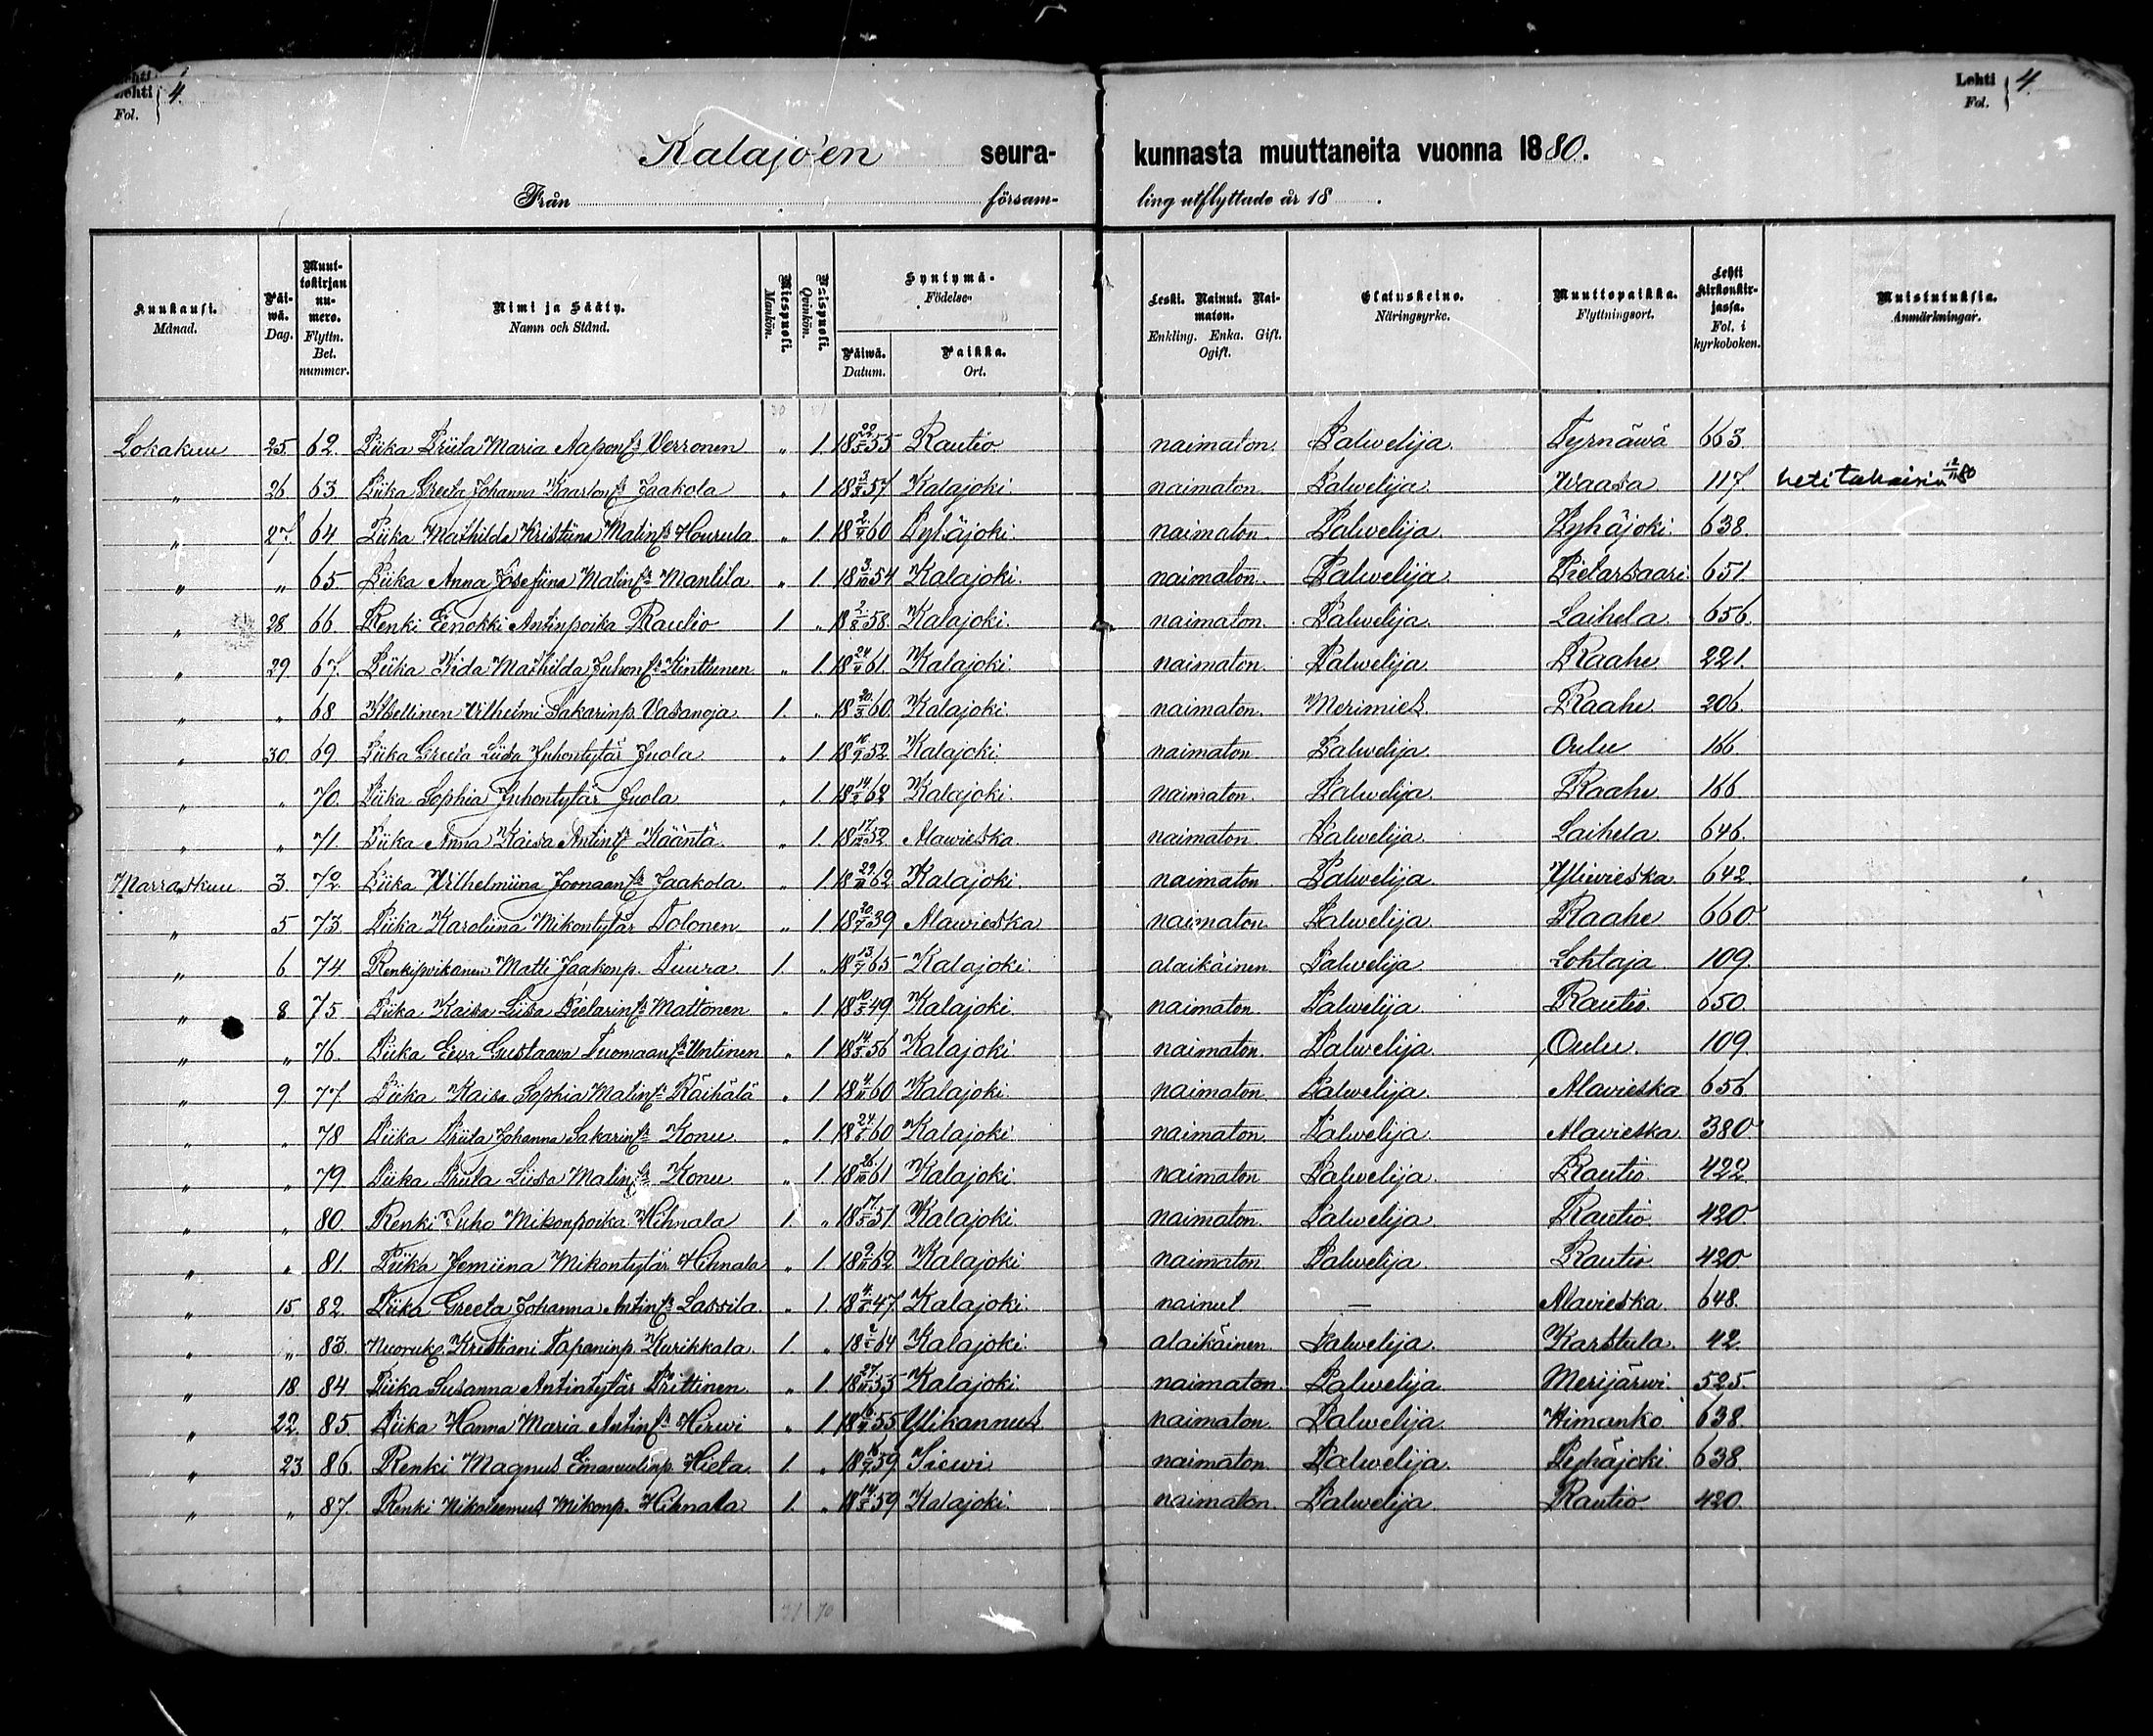 Lehti 4. Fol. Lehti 4. Fol.
Kalajoen seurakunnasta muuttaneita vuonna 1880.
Från församling utflyttade år 18 .
Kuukausi. Månad. Päiwä. Dag. Muuttokirjan numero. Flyttn. Bet. nummer. Nimi ja Sääty. Namn och Stånd. Miespuoli. Mankön. Naispuoli. Qvinkön. Syntymä- Födelse- Päiwä. Datum. Paikka. Ort. Leski. Nainut. Naimaton. Enkling. Enka. Gift. Ogift. Elatuskeino. Näringsyrke. Muuttopaikka. Flyttningsort. Lehti kirkonkirjassa. Fol. i kyrkoboken. Muistutuksia. Anmärkningar.
Lokakuu 25. 62. Piika Priita Maria Aaponts Verronen " 1. 18 55 Rautio naimaton. Palwelija. Tyrnäwä 663.
" 26 63. Piika Greeta Johanna Kaarlonts Jaakola " 1 18 57 Kalajoki. naimaton. Palwelija. Waasa 117.
" 27. 64 Piika Mathilda Kristiina Matints Hourula " 1. 18 60 Pyhäjoki. naimaton. Palwelija. Pyhäjoki. 638.
" " 65 Piika Anna Josefiina Matints Mantila " 1. 18 54 Kalajoki. naimaton. Palwelija Pietarsaari 651
" 28 66. Renki Eenokki Antinpoika Rautio 1. " 18 58. Kalajoki. naimaton. Palwelija. Laihela 656.
" 29. 67. Piika Iida Mathilda Juhonts Kinttunen " 1. 18 61. Kalajoki. naimaton. Palwelija. Raahe 221.
" " 68 Itsellinen Vilhelmi Sakarinp. Vasanoja 1. " 18 60 Kalajoki. naimaton. Merimies Raahe 206
" 30 69 Piika Greeta Liisa Juhontytär Juola " 1 18 52 Kalajoki. naimaton Palwelija. Oulu 166.
" " 70. Piika Sophia Juhontytär Juola " 1. 18 62 Kalajoki. naimaton. Palwelija. Raahe 166
" " 71. Piika Anna Kaisa Antints Kääntä. " 1. 18 52 Alawieska. naimaton. Palwelija. Laihela 646.
Marraskuu 3. 72. Piika Vilhelmiina Joonaants Jaakola. " 1. 18 62 Kalajoki. naimaton. Palwelija. Yliwieska. 642.
" 5 73. Piika Karoliina Mikontytär Tolonen " 1 18 39 Alawieska naimaton. Palwelija. Raahe 660.
" 6 74 Renkipoikanen Matti Jaakonp. Tuura 1. " 18 65 Kalajoki. alaikäinen. Palwelija Lohtaja 109.
" 8 75. Piika Kaisa Liisa Pietarints Mattonen " 1 18 49 Kalajoki. naimaton. Palwelija Rautio. 650.
" " 76. Piika Eeva Gustaava Tuomaants Untinen " 1 18 56 Kalajoki. naimaton. Palwelija. Oulu. 109.
" 9. 77. Piika Kaisa Sophia Matints Räihälä " 1 18 60 Kalajoki. naimaton Palwelija. Alavieska 656
" " 78 Piika Priita Johanna Sakarints Konu. " 1. 18 60 Kalajoki. naimaton. Palwelija. Alavieska. 380.
" " 79. Piika Priita Liisa Matints Konu " 1. 18 61 Kalajoki. naimaton Palwelija. Rautio 422
" " 80 Renki Juho Mikonpoika Hihnala 1. " 18 51 Kalajoki naimaton. Palwelija. Rautio. 420
" " 81. Piika Jemiina Mikontytär Hihnala " 1. 18 62 Kalajoki naimaton Palwelija. Rautio 420
" 15 82. Piika Greeta Johanna Antints Lassila. " 1. 18 47 Kalajoki. nainut — Alavieska. 648.
" " 83. Nuoruk. Kristiani Tapaninp. Kurikkala. 1. " 18 64 Kalajoki. alaikäinen. Palwelija. Karstula. 42.
" 18. 84 Piika Susanna Antintytär Prittinen " 1 18 53 Kalajoki. naimaton. Palwelija. Merijärwi. 525.
" 22. 85. Piika Hanna Maria Antints Hirwi " 1 18 55 Ylikannus naimaton. Palwelija. Himanko 638.
" 23 86. Renki Magnus Emanuelinp. Hieta. 1. " 18 59 Siewi naimaton Palwelija. Pyhäjoki 638.
" " 87. Renki Nikoteemus Mikonp. Hihnala 1. " 18 59 Kalajoki. naimaton. Palwelija. Rautio 420.